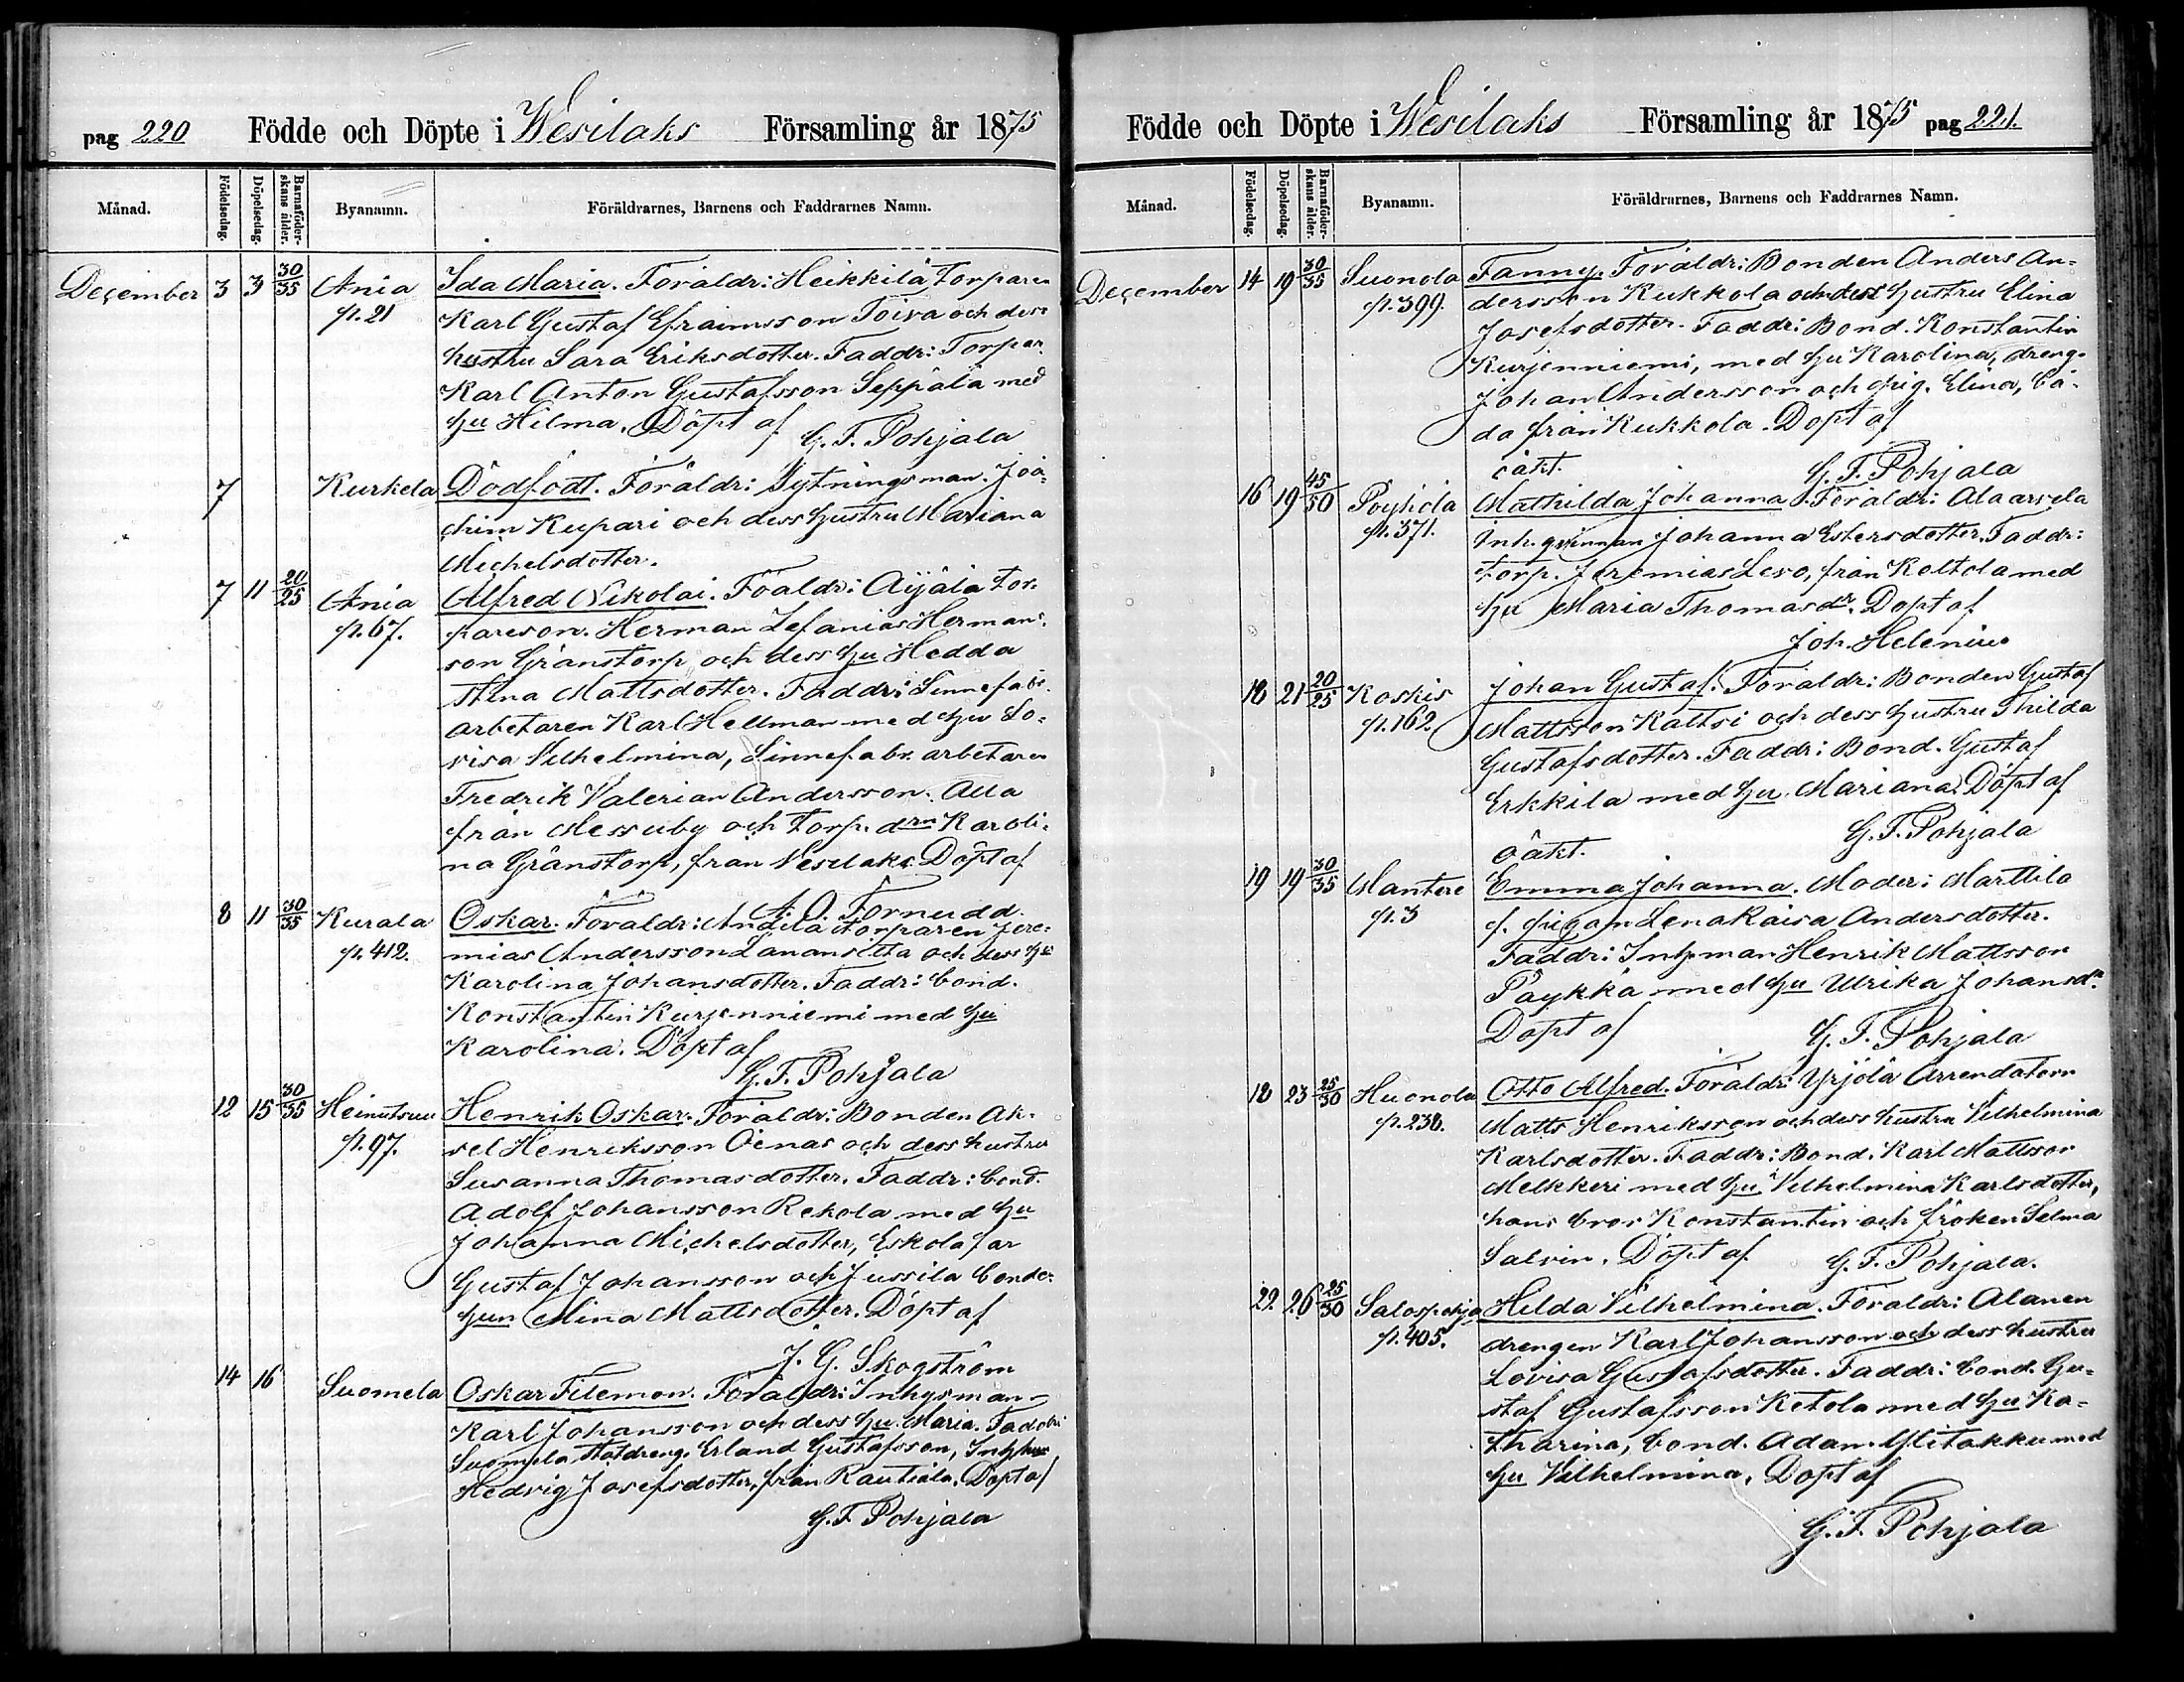 pag 220 Födde och Döpte i Wesilaks Församling år 1875
Månad. Födelsedag. Döpelsedag. Barnaföderskans ålder. Byanamn. Föräldrarnes, Barnens och Faddrarnes Namn.
December 3 3 30/35 Ania Ida Maria. Föräldr: Heikkilä Torparen
p. 21 Karl Gustaf Efraimsson Toiva och dess
hustru Sara Eriksdotter. Faddr: Torpar.
Karl Anton Gustafsson Seppälä med
hu Hilma. Döpt af G. F. Pohjala
7 Kurkela Dödfödt. Föräldr: Sytningsman. Joa-
chim Kupari och dess hustru Mariana
Michelsdotter.
7 11 20/25 Ania Alfred Nikolai. Föaldr: Äijälä Tor-
p. 67. pareson. Herman Zefanias Herman-
son Gränstorp och dess hu Hedda
Stina Mattsdotter. Faddr: Linnefabr.
arbetaren Karl Hellman med hu Lo-
visa Vilhelmina, Linnefabr. arbetaren
Fredrik Valerian Andersson. Alla
från Messuby och Torp. drn Karoli-
na Gränstorp, från Vesilaks. Döpt af
A. O. Törnudd.
8 11 30/35 Kurala Oskar. Föräldr: Anöila torparen Jere-
p. 412. mias Andersson Lanansitta och dess hu
Karolina Johansdotter. Faddr: bond.
Konstantin Kurjenniemi med hu
Karolina. Döpt af
G. F. Pohjala
12 15 30/35 Heinutsuu Henrik Oskar. Föräldr: Bonden Ak-
p. 97. sel Henriksson Oenas och dess hustru
Susanna Thomasdotter. Faddr: bond.
Adolf Johansson Rekola med hu
Johanna Michelsdotter, Eskola far
Gustaf Johansson och Jussila bonde-
hun Mina Mattsdotter. Döpt af
J. G. Skogström
14 16 Suomela Oskar Filemon. Föräldr: Inhysman-
Karl Johansson och dess hu. Maria. Faddr:
Suomela Statdreng. Erland Gustafsson, Inh
Hedvig Josefsdotter, från Rautiala. Döpt af
G. F. Pohjala
Födde och Döpte i Wesilaks Församling år 1875 pag 221.
Månad. Födelsedag. Döpelsedag. Barnaföderskans ålder. Byanamn. Föräldrarnes, Barnens och Faddrarnes Namn.
December 14 19 30/35 Suonola Fanny. Föräldr: Bonden Anders An-
p. 399. dersson Kukkola och dess hustru Elina
Josefsdotter. Faddr: Bond. Konstantin
Kurjenniemi, med hu Karolina, dreng.
Johan Andersson och pig. Elina, bå-
da från Kukkola. Döpt af
oäkt. G. F. Pohjala
16 19 45/50 Pöyhölä Mathilda Johanna. Föräldr: Ala arvela
p. 371. Inh. qvinnan Johanna Estersdotter. Faddr:
Torp. Jeremias Levo, från Koltola med
hu Maria Thomasdr. Döpt af
Joh. Helenius
18 21 20/25 Koskis Johan Gustaf. Föräldr: Bonden Gustaf
p. 162. Mattsson Kaltsi och dess hustru Thilda
Gustafsdotter. Faddr: Bond. Gustaf
Erkkilä med hu. Mariana. Döpt af
oäkt. G. F. Pohjala
19 19 30/35 Mantere Emma Johanna. Moder: Marttila
p. 3 f. pigan Lena Kaisa Andersdotter.
Faddr: Inhman Henrik Mattsson
Päykkä med hu Ulrika Johansdr.
Döpt af G. F. Pohjala
18 23 25/30 Huonola Otto Alfred. Föräldr: Yrjölä Arrendatorn
p. 238. Matts Henriksson och dess hustru Vilhelmina
Karlsdotter. Faddr: Bond. Karl Mattsson
Melkkeri med hu Vilhelmina Karlsdotter,
hans bror Konstantin och fröken Selma
Salvin. Döpt af G. F. Pohjala.
22 26 25/30 Salospohja Hilda Vilhelmina. Föräldr: Alanen
p. 405. drengen Karl Johansson och dess hustru
Lovisa Gustafsdotter. Faddr: bond. Gu-
staf Gustafsson Ketola med hu Ka-
tharina, bond. Adam Ylitakku med
hu Vilhelmina. Döpt af
G. F. Pohjala